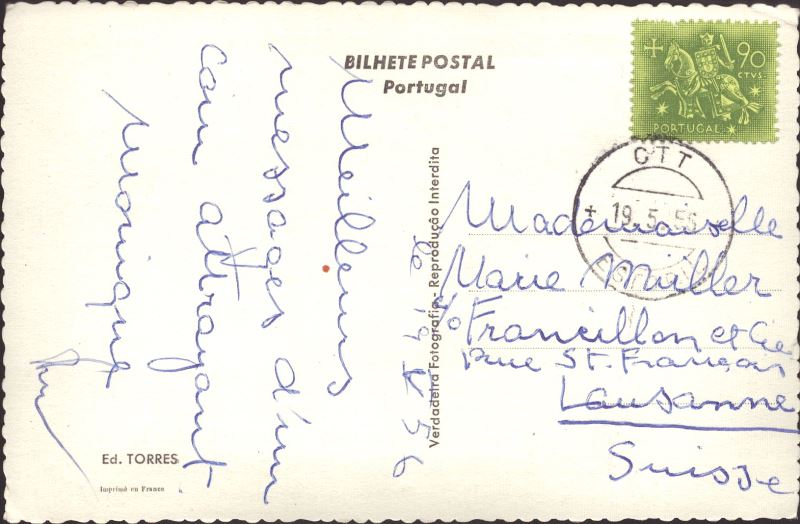 BILHETE POSTAL
Portugal
90
CTVS.
PORTUGAL
CTT
19.5.56
Meilleurs
messages d'un
coin attrayant
Monique
le 19 V 56
Verdadeira Fotografia - Reprodução Interdita
Mademoiselle
Marie Müller
c/o Francillon et Cie
Rue St. François
Lausanne
Suisse
Ed. TORRES
Imprimé en France